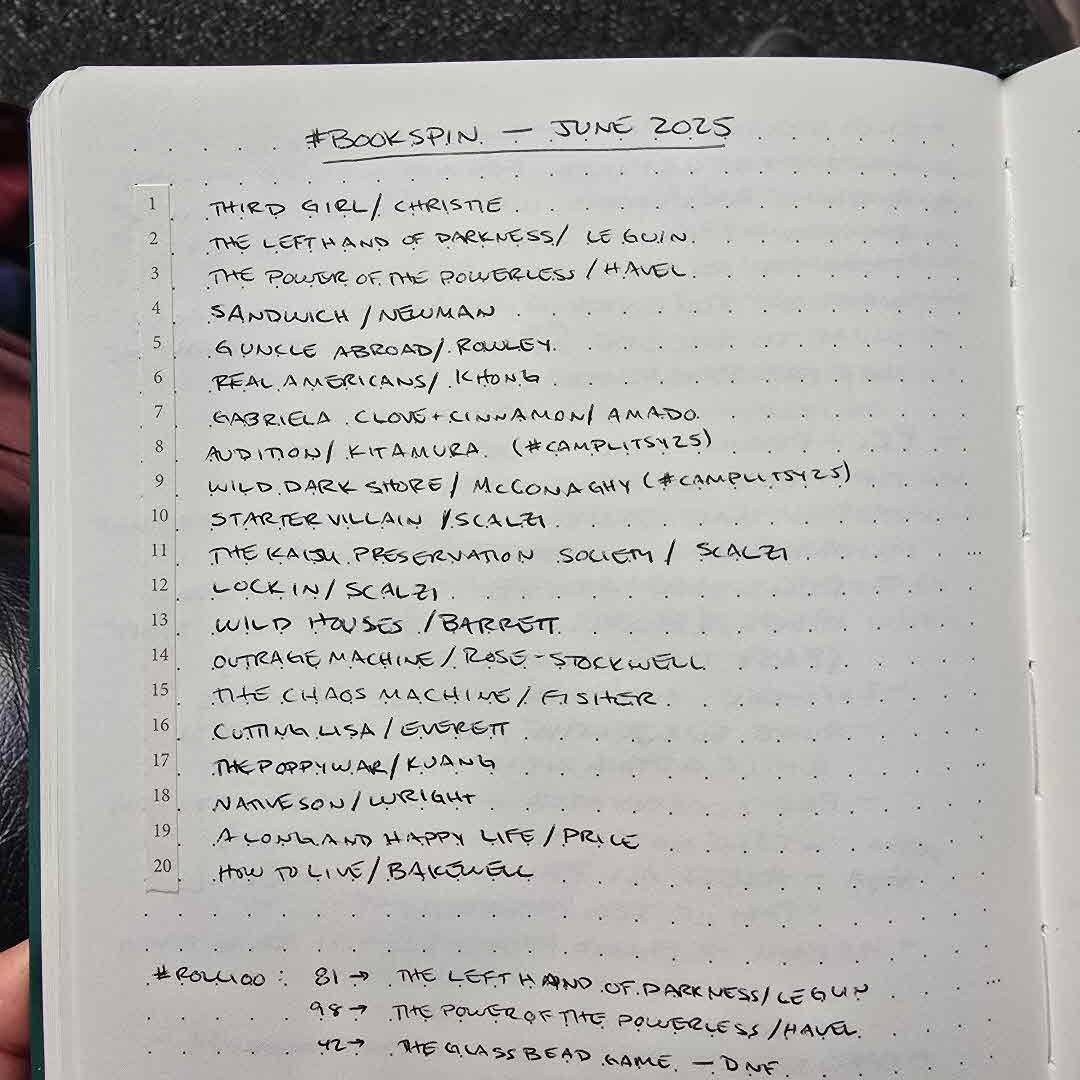 #BOOKSPIN — JUNE 2025
1 THIRD GIRL / CHRISTIE
2 THE LEFT HAND OF DARKNESS / LE GUIN
3 THE POWER OF THE POWERLESS / HAVEL
4 SANDWICH / NEWMAN
5 GUNCLE ABROAD / ROWLEY
6 REAL AMERICANS / KHONG
7 GABRIELA CLOVE + CINNAMON / AMADO
8 AUDITION / KITAMURA (#CAMPLITSY25)
9 WILD DARK SHORE / McCONAGHY (#CAMPLITSY25)
10 STARTER VILLAIN / SCALZI
11 THE KAIJU PRESERVATION SOCIETY / SCALZI
12 LOCK IN / SCALZI
13 WILD HOUSES / BARRETT
14 OUTRAGE MACHINE / ROSE-STOCKWELL
15 THE CHAOS MACHINE / FISHER
16 CUTTING LISA / EVERETT
17 THE POPPY WAR / KUANG
18 NATIVE SON / WRIGHT
19 A LONG AND HAPPY LIFE / PRICE
20 HOW TO LIVE / BAKEWELL
#ROLL100: 81 → THE LEFT HAND OF DARKNESS / LE GUIN
98 → THE POWER OF THE POWERLESS / HAVEL
42 → THE GLASS BEAD GAME — DNF